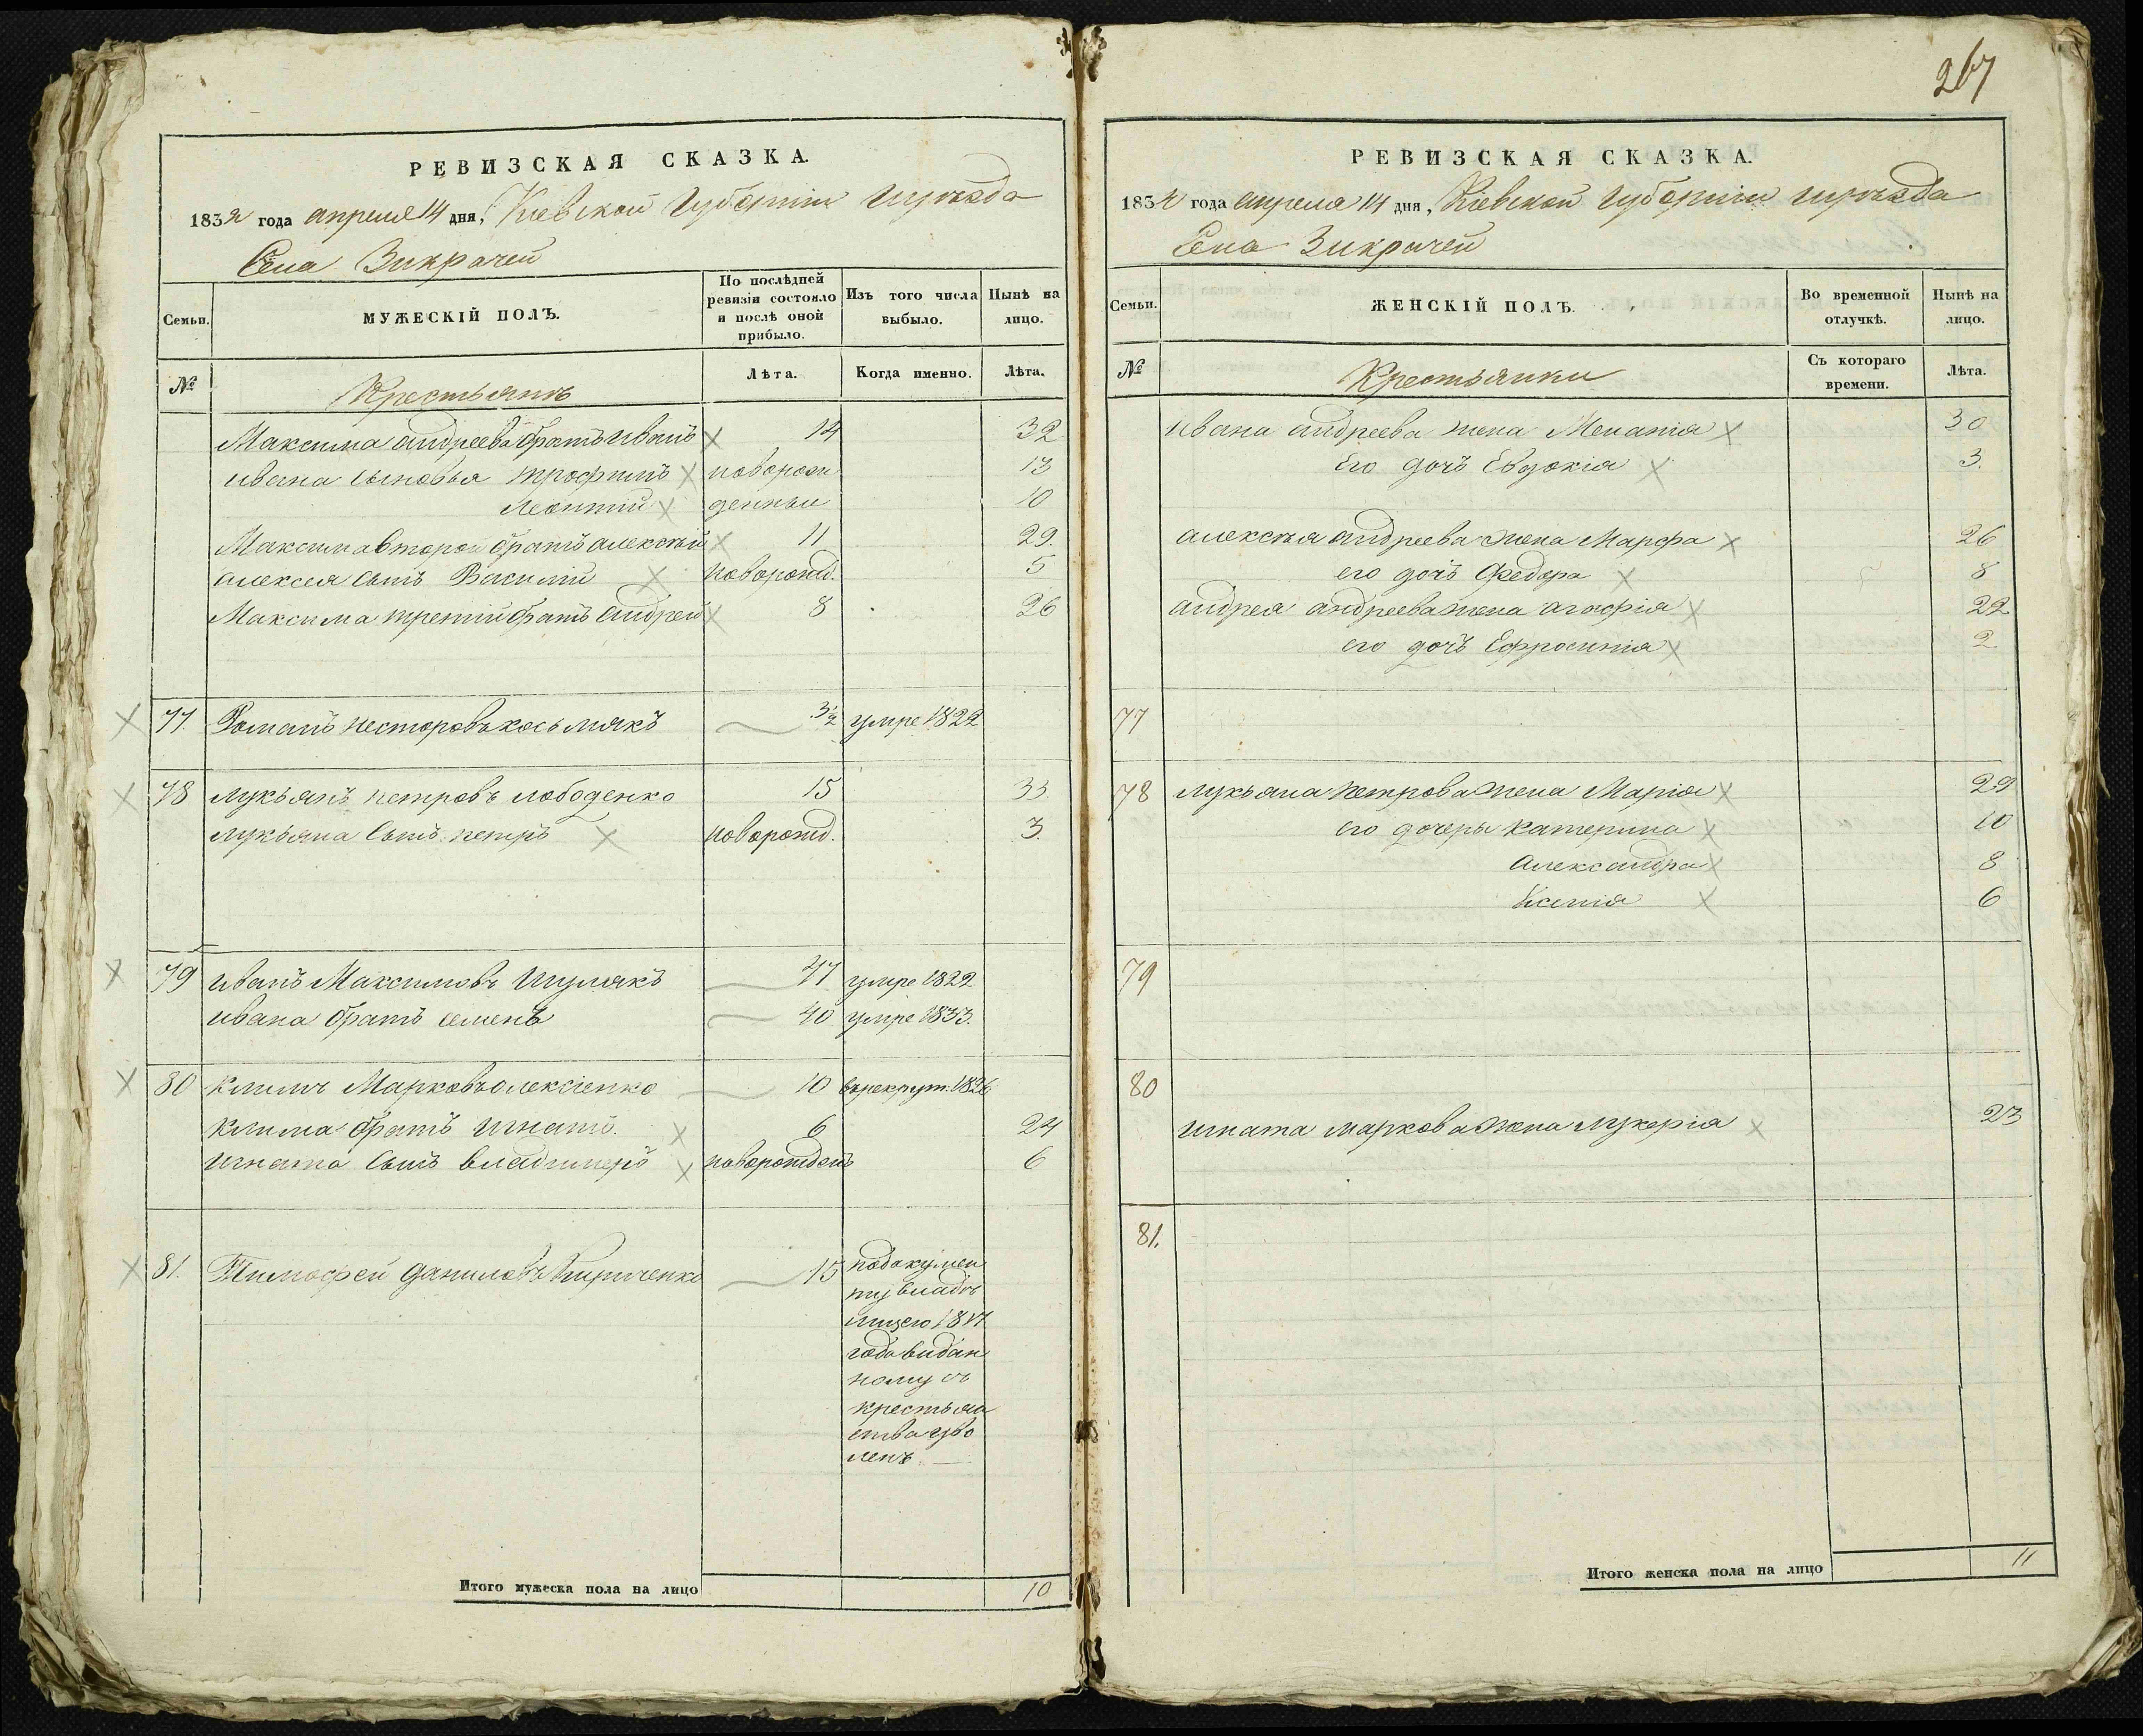 267
РЕВИЗСКАЯ СКАЗКА.
1834 года апреля 14 дня, Киевской Губернии уезда
Села Зикрачей
Семьи.
МУЖЕСКІЙ ПОЛЪ.
По послѣдней ревизіи состояло и послѣ оной прибыло.
Изъ того числа выбыло.
Нынѣ на лицо.
№
Крестьянъ
Лѣта.
Когда именно.
Лѣта.
Максима андреева братъ иванъ 14 32
ивана сыновья трофимъ новорож 13
леонтій денныи 10
Максима второй братъ алексѣй 11 29
алексея сынъ Василій новорожд. 5
Максима третий братъ андрей 8 26
77. Романъ несторовъ косьмякъ 3½ умре 1822
78 лукьянъ петровъ лободенко 15 33.
лукьяна сынъ петръ новорожд. 3.
79 иванъ Максимовъ шулякъ 47 умре 1822
ивана братъ семенъ 40 умре 1833.
80 климъ Марковъ олексіенко 10 въ рекрут. 1826
клима братъ игнатъ. 6 24
игната сынъ владимеръ новорожденъ 6
81. Тимофей даниловъ Кириченко 15 подокумен
ту владѣ
лицею 1817
года видан
ному съ
крестьян
ства уво
ленъ.
Итого мужеска пола на лицо 10
РЕВИЗСКАЯ СКАЗКА.
1834 года апреля 14 дня, Кіевской Губерніи уезда
Села Зикрачей
Семьи.
ЖЕНСКІЙ ПОЛЪ.
Во временной отлучкѣ.
Нынѣ на лицо.
№
Крестьянки
Съ котораго времени.
Лѣта.
ивана андреева жена Меланія 30
его дочъ Евдокія 3.
алексѣя андреева жена Марфа 26
его дочъ Федора 8
андрея андреева жена агафія 22
его дочъ Ефросинія 2
77
78 лукьяна петрова жена Марія 29
его дочеры катерина 10
александра 8
Ксенія 6
79
80
игната маркова жена лукерія 23
81.
Итого женска пола на лицо 11